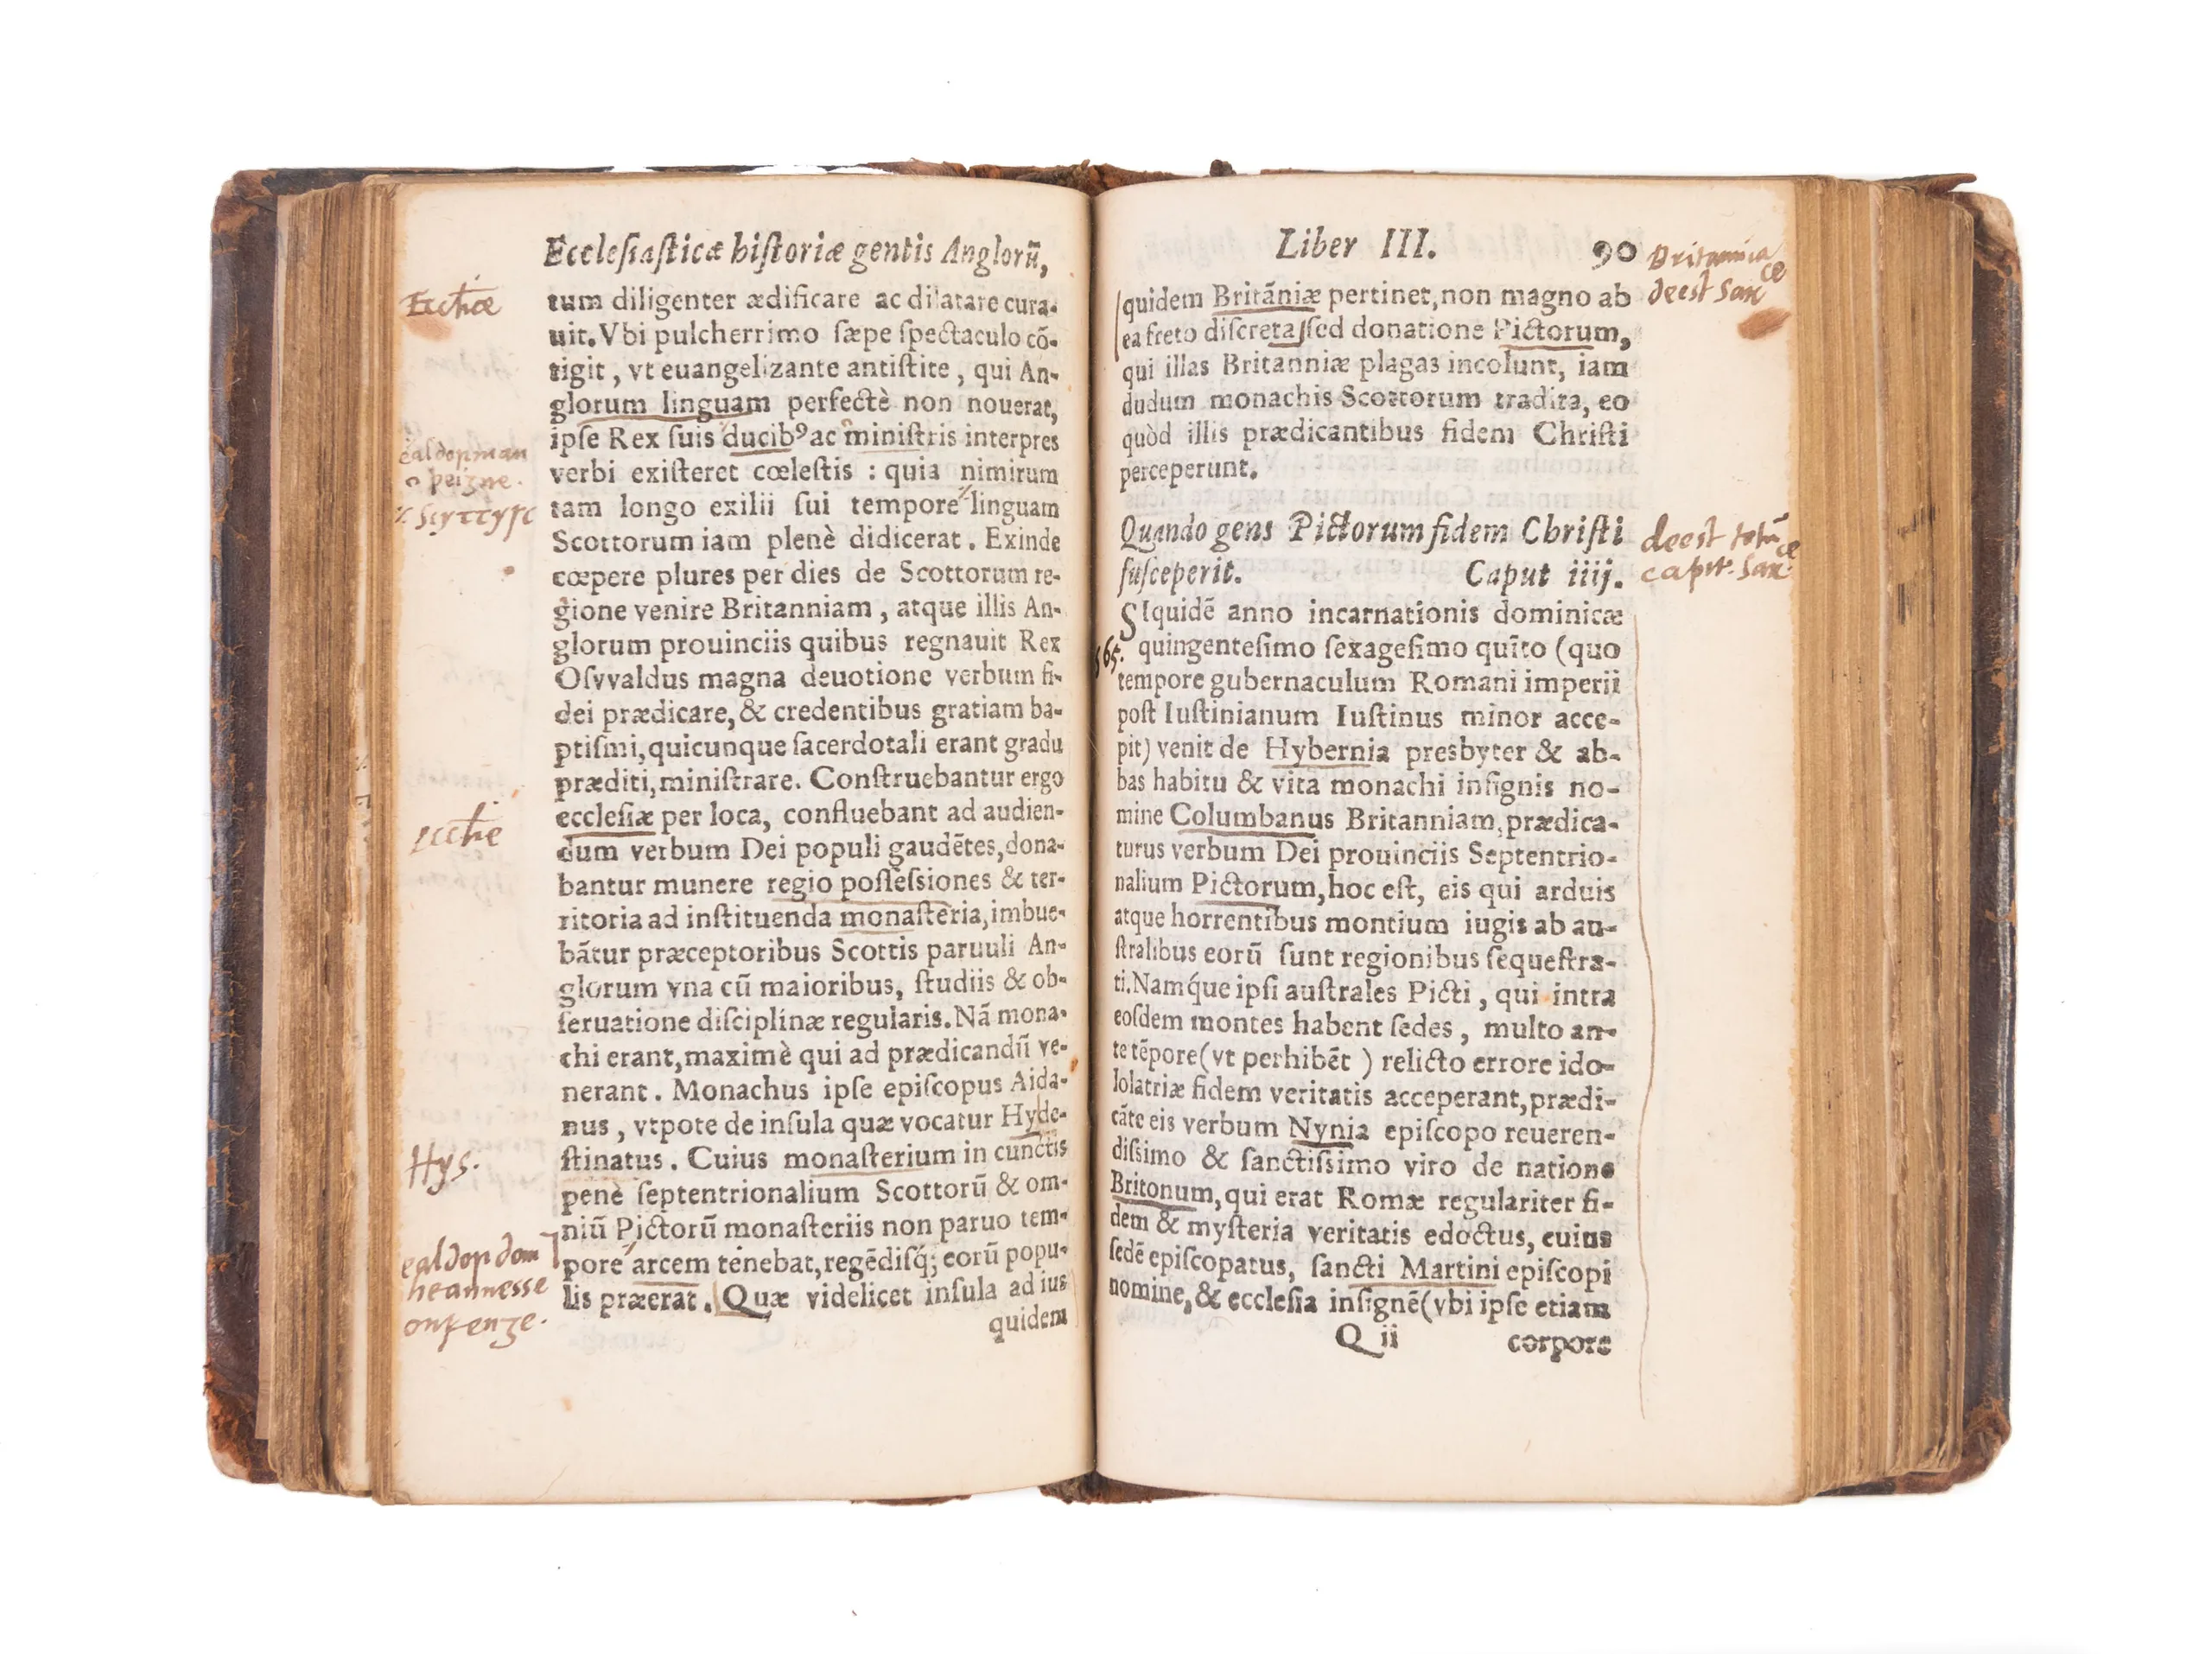 Ecclesiasticæ historiæ gentis Anglorũ,
Ecctiæ
tum diligenter ædificare ac dilatare cura-
uit. Vbi pulcherrimo ſæpe ſpectaculo cõ-
tigit, vt euangelizante antiſtite, qui An-
glorum linguam perfectè non nouerat,
ipſe Rex ſuis ducibꝰ ac miniſtris interpres
ealdorman
verbi exiſteret cœleſtis : quia nimirum
tam longo exilii ſui tempore linguam
Scottorum iam plenè didicerat. Exinde
cœpere plures per dies de Scottorum re-
gione venire Britanniam, atque illis An-
glorum prouinciis quibus regnauit Rex
Oſvvaldus magna deuotione verbum fi-
dei prædicare, & credentibus gratiam ba-
ptiſmi, quicunque ſacerdotali erant gradu
præditi, miniſtrare. Conſtruebantur ergo
eccleſiæ per loca, confluebant ad audien-
dum verbum Dei populi gaudẽtes, dona-
bantur munere regio poſſeſsiones & ter-
ritoria ad inſtituenda monaſteria, imbue-
bãtur præceptoribus Scottis paruuli An-
glorum vna cũ maioribus, ſtudiis & ob-
ſeruatione diſciplinæ regularis. Nã mona-
chi erant, maximè qui ad prædicandũ ve-
nerant. Monachus ipſe epiſcopus Aida-
nus, vtpote de inſula quæ vocatur Hyde-
Hys.
ſtinatus. Cuius monaſterium in cunctis
penè ſeptentrionalium Scottorũ & om-
niũ Pictorũ monaſteriis non paruo tem-
ealdordom
pore arcem tenebat, regẽdiſq́; eorũ popu-
heannesse
lis præerat. Quæ videlicet inſula ad ius
onfenge.
quidem
Liber III. 90
Britannia
deest Sax ce
quidem Britãniæ pertinet, non magno ab
ea freto diſcreta, ſed donatione Pictorum,
qui illas Britanniæ plagas incolunt, iam
dudum monachis Scottorum tradita, eo
quòd illis prædicantibus fidem Chriſti
perceperunt.
Quando gens Pictorum fidem Chriſti
ſuſceperit. Caput iiij.
deest totũ
capit. Sax ce
SIquidẽ anno incarnationis dominicæ
565.
quingenteſimo ſexageſimo quĩto (quo
tempore gubernaculum Romani imperii
poſt Iuſtinianum Iuſtinus minor acce-
pit) venit de Hybernia presbyter & ab-
bas habitu & vita monachi inſignis no-
mine Columbanus Britanniam, prædica-
turus verbum Dei prouinciis Septentrio-
nalium Pictorum, hoc eſt, eis qui arduis
atque horrentibus montium iugis ab au-
ſtralibus eorũ ſunt regionibus ſequeſtra-
ti. Namq́ue ipſi auſtrales Picti, qui intra
eoſdem montes habent ſedes, multo an-
te tẽpore (vt perhibẽt ) relicto errore ido-
lolatriæ fidem veritatis acceperant, prædi-
cãte eis verbum Nynia epiſcopo reueren-
diſsimo & ſanctiſsimo viro de natione
Britonum, qui erat Romæ regulariter fi-
dem & myſteria veritatis edoctus, cuius
ſedẽ epiſcopatus, ſancti Martini epiſcopi
nomine, & eccleſia inſignẽ (vbi ipſe etiam
Q ii corpore